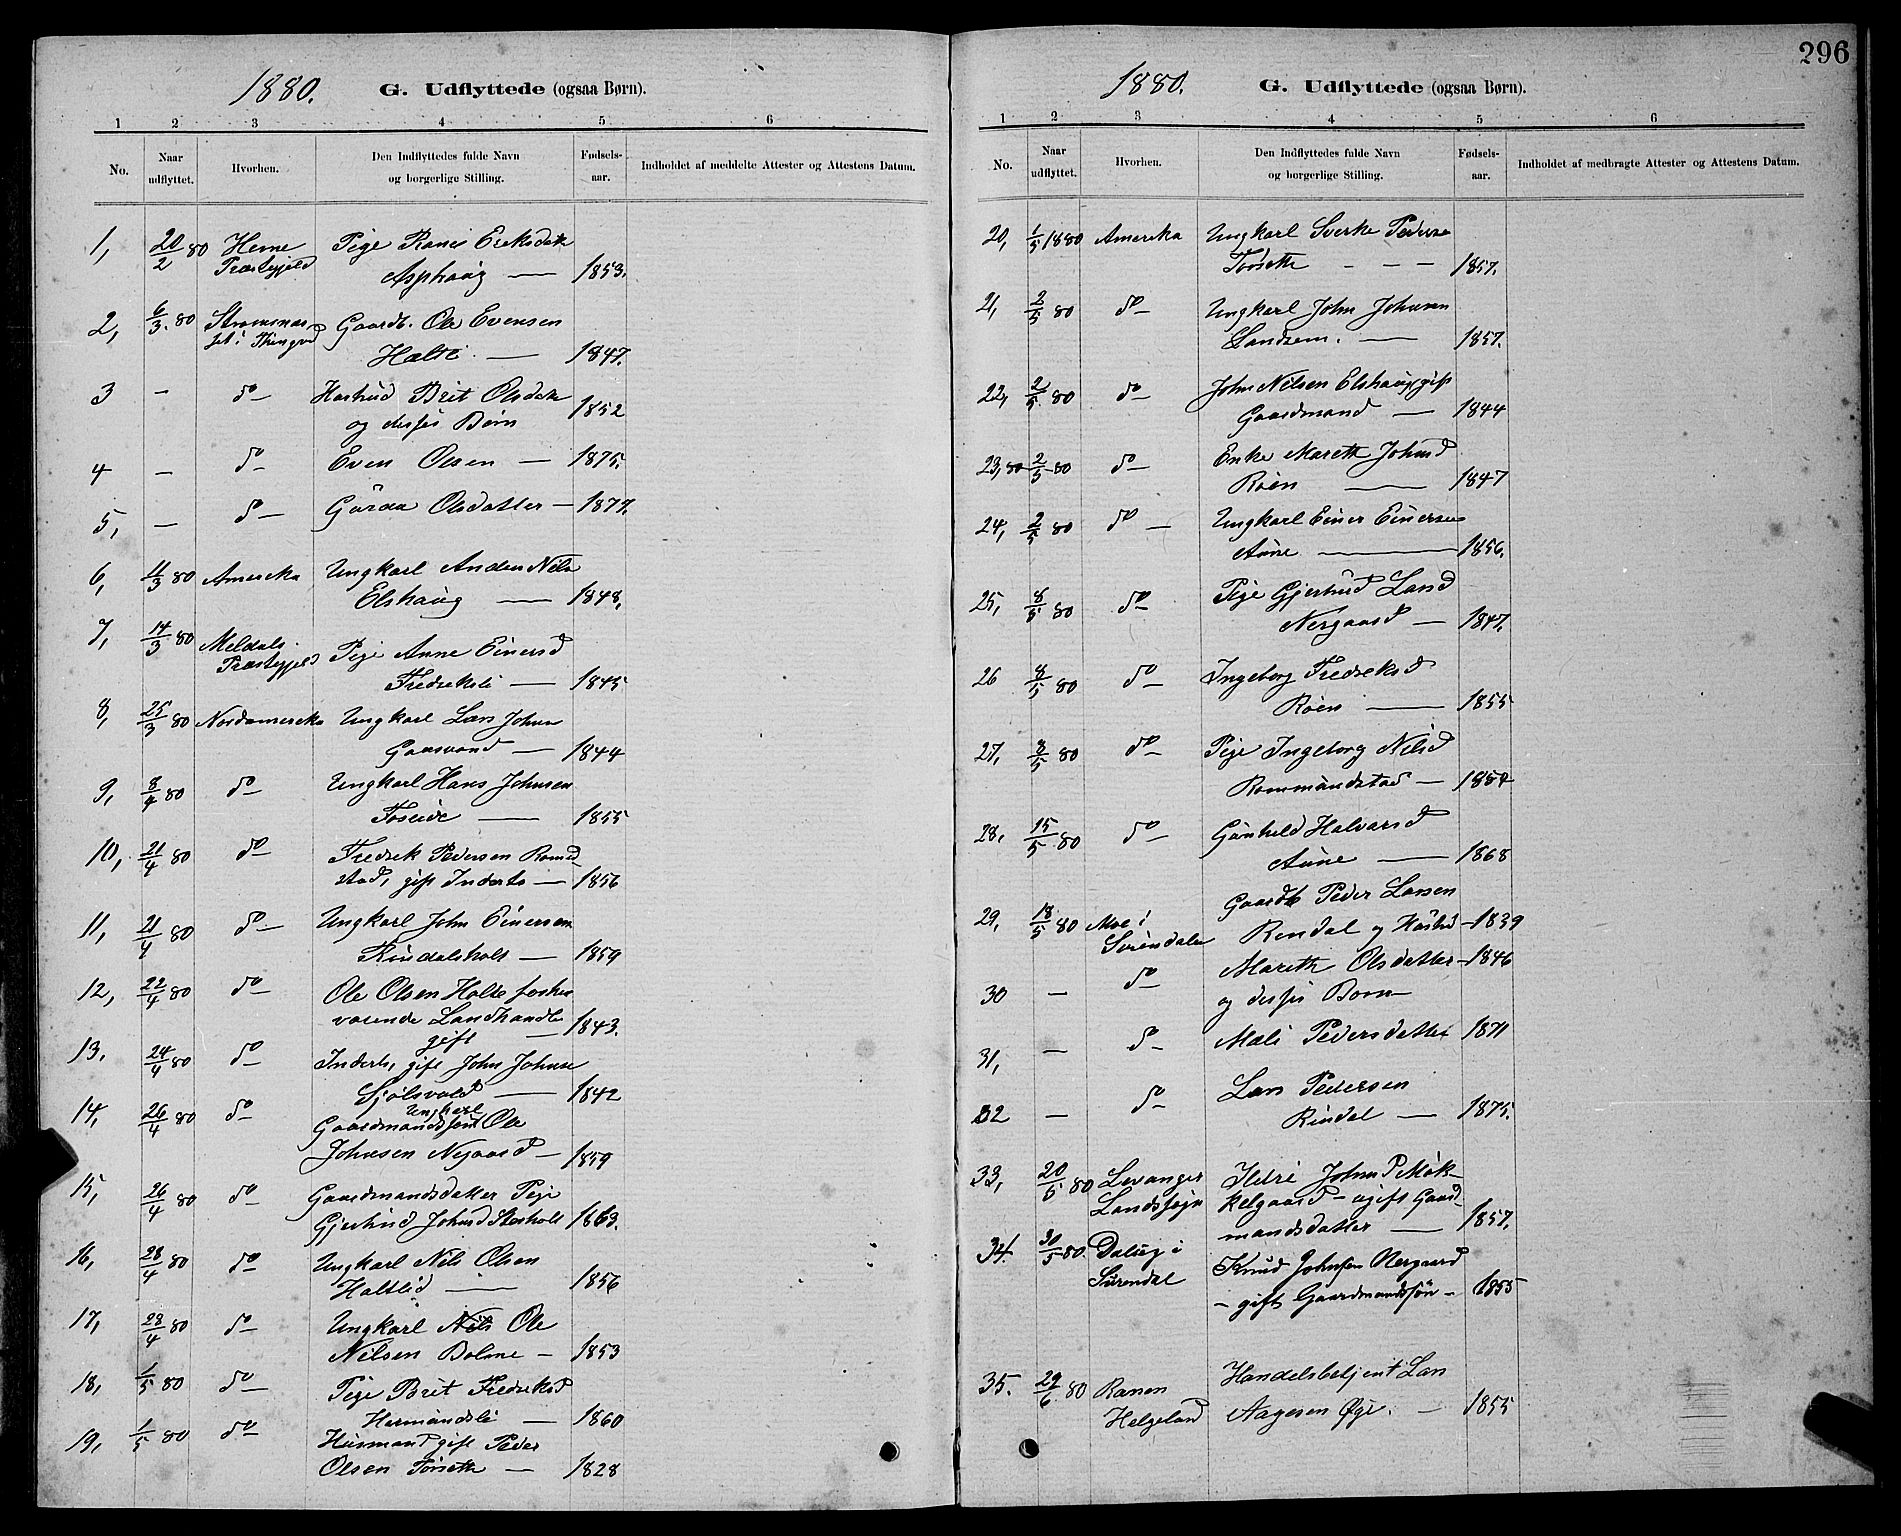 296
1880. G. Udflyttede (ogsaa Børn).
1 2 3 4 5 6
No. Naar udflyttet. Hvorhen. Den Indflyttedes fulde Navn og borgerlige Stilling. Fødsels-aar. Indholdet af meddelte Attester og Attestens Datum.
1, 20/2 80 Hemne Pige Eriksdatter
Præstegjeld Asphaug — 1853.
2, 6/3 80 Gaardb. Ole Evensen
Halte — 1847.
3 — do Hustrud Brit Olsdatter
og deres Børn 1852
4 — do Even Olsen — 1875.
5, — do Guroa Olsdatter — 1877.
6, 11/3 80 Amerika Ungkarl Anders Nils
Elshaug — 1848.
7, 14/3 80 Meldals Pige Anne Einersd
Præstegjeld Fredriksli — 1845
8, 25/3 80 Nordamerika Ungkarl Lars Johns
Gaasvand — 1844
9, 8/4 80 do Ungkarl Hans Johnsen
Foseide — 1855
10, 21/4 80 do Fredrik Pedersen Romd
stad, gift Inderts — 1856
11, 21/4 80 do Ungkarl John Einersen
Rindalsholt — 1859
12, 22/4 80 do Ole Olsen Halte forhen
værende Landhandle
gift — 1843.
13. 24/4 80 do Inderts, gift John Johnse
Sjølsvold — 1842
14, 26/4 80 do Ungkarl
Gaardmandssøn Ole
Johnsen Negaard — 1859
15, 26/4 80 do Gaardmandsdatter Pige
Gjertrud Johnsd Storholt 1863.
16, 28/4 80 do Ungkarl Nils Olsen
Haltlid — 1856
17, 28/4 80 do Ungkarl Nils Ole
Nilsen Bolme — 1853
18, 1/5 80 do Pige Brit Fredriksd
Hermandsli — 1860
19, 1/5 80 do Husmand gift Peder
Olsen Torsetth — 1828
1880. G. Udflyttede (ogsaa Børn).
1 2 3 4 5 6
No. Naar udflyttet. Hvorhen. Den Indflyttedes fulde Navn og borgerlige Stilling. Fødsels-aar. Indholdet af medbragte Attester og Attestens Datum.
20, 1/5 1880 Amerika Ungkarl Sverke Pederse
Torsetth — — — 1857.
21, 2/5 80 do Ungkarl John Johnsen
Landsem. — 1857.
22, 2/5 80 do John Nilsen Elshaug, gift
Gaardmand — 1844
23, 80 2/5 80 do Enke Mareth Johnsd
Røen — 1847
24, 2/5 80 do — Ungkarl Einer Einersen
Aune — 1856.
25, 8/5 80 do Pige Gjertrud Larsd
Nergaard — 1847.
26 8/5 80 do Ingeborg Fredriksd
Røen — 1855
27, 8/5 80 do Pige Ingeborg Nilsd
Rommundstad — 1854
28, 15/5 80 do Gunhild Halvorsd
Aune — 1868
29, 18/5 80 Moe i Gaardb Peder Larsen
Surendalen Rindal og Hustru — 1839
30 — do Mareth Olsdatter — 1846
og deres Børn —
31, — do Mali Pedersdatter 1871
32 — do Lars Pedersen
Rindal — 1875.
33, 20/5 80 Levanger Ildri Johnsd Møk-
Landsogn kelgaard — ugift Gaard-
mandsdatter — 1857.
34. 30/5 80. Dalseg i Knud Johnsen Nergaard
Surendal — gift Gaardmandssøn — 1855
35. 29/6 80 Ranen Handelsbetjent Lars
Helgeland Aagesen Øye. — 1855